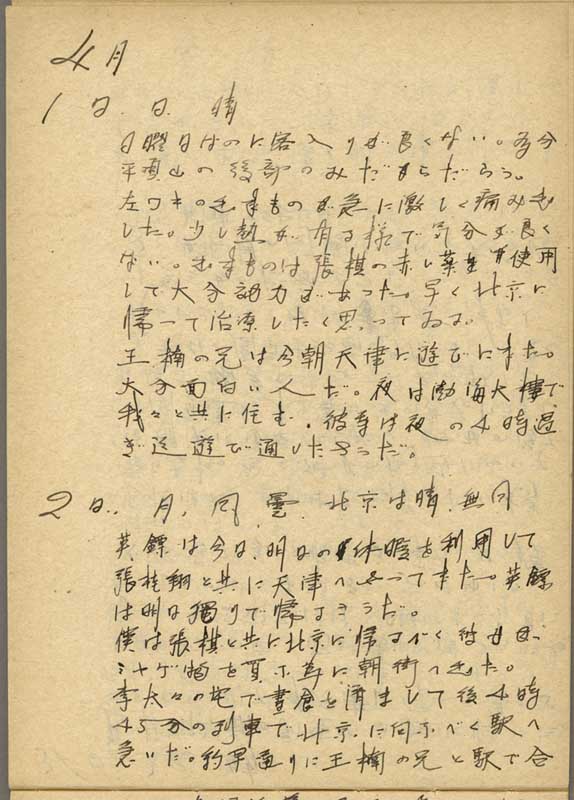 4月
1日. 日. 晴
日曜日なのに客入りが良くない。多分
平頂山の後部のみだからだらう。
左ワキの出来ものが急に激しく痛み出
した。少し熱が有る様で気分が良く
ない。出来ものは張棋の赤い薬を使用
して大分効力があった。早く北京に
帰って治療したく思ってゐる。
王楠の兄は今朝天津に遊びに来た。
大分面白い人だ。夜は渤海大樓で
我々と共に住む. 彼等は夜の4時過
ぎ迄遊び通したさうだ。
2日. 月. 風曇. 北京は晴. 無風
英鏢は今日.明日の休暇を利用して
張桂翔と共に天津へやって来た。英鏢
は明日獨りで帰るさうだ。
僕は張棋と共に北京に帰るべく彼女は.
ミヤゲ物を買ふ為に朝街へ出た。
李太々の宅で晝食を済まして後4時
45分の列車で北京に向ふべく駅へ
急いだ。約束通りに王楠の兄と駅で合